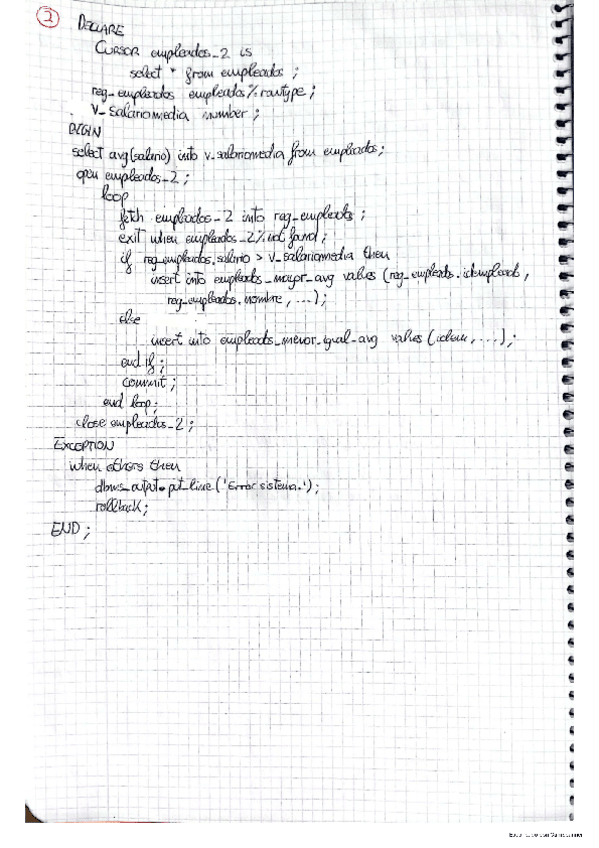 2
DECLARE
CURSOR empleados_2 is
select * from empleados ;
reg_empleados empleados%rowtype ;
V_salariomedia number ;
BEGIN
select avg(salario) into v_salariomedia from empleados;
open empleados_2 ;
loop
fetch empleados_2 into reg_empleados ;
exit when empleados_2%notfound ;
if reg_empleados.salario > v_salariomedia then
insert into empleados_mayor_avg values (reg_empleados.idempleado,
reg_empleados.nombre, ...);
else
insert into empleados_menor_igual_avg values (idem, ...);
end if ;
commit ;
end loop;
close empleados_2 ;
EXCEPTION
when others then
dbms_output.put_line('Error sistema.');
rollback;
END ;